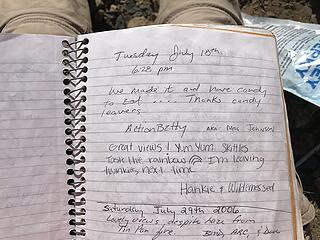 Tuesday July 18th
6:28 pm
We made it and have candy
to eat .... Thanks candy
leavers
ActionBetty AKA Dave Johnson
Great views! Yum Yum. Skittles
Taste the rainbow I'm leaving
twinkies next time
Hankie &
Saturday July 29th 2006
Lovely views, despite haze from
Tin Pan fire.